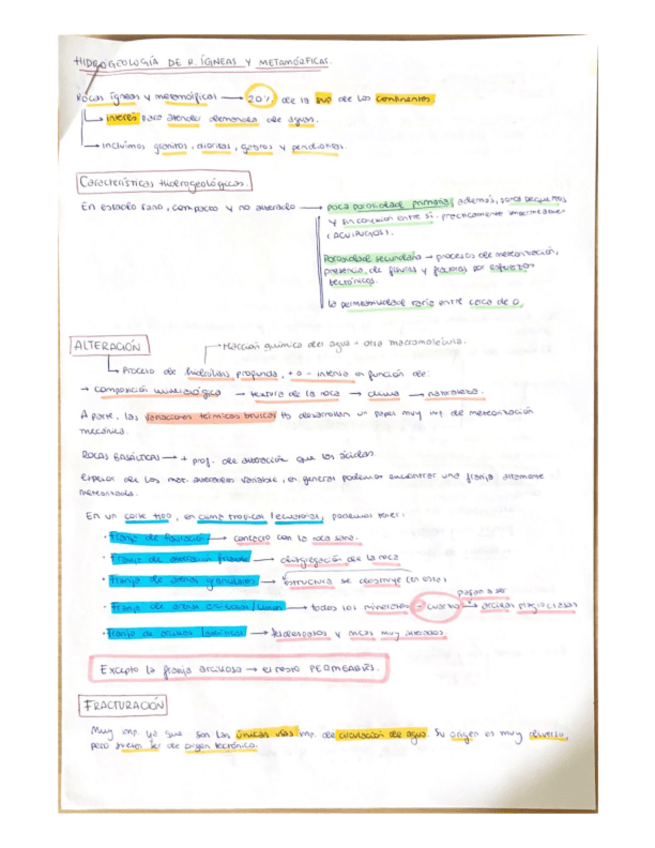 HIDROGEOLOGÍA DE R. ÍGNEAS Y METAMÓRFICAS.
Rocas ígneas y metamórficas → 20% de la sup de los continentes.
→ interés para atender demandas de aguas.
→ incluimos granitos, dioritas, gabros y peridotitas.
Características hidrogeológicas.
En estado sano, compacto y no alterado → poca porosidad primaria, además, poros pequeños
y sin conexión entre sí. prácticamente impermeables
(ACUÍFUGOS).
Porosidad secundaria → procesos de meteorización,
presencia de fisuras y fracturas por esfuerzos
tectónicos.
la permeabilidad varía entre cerca de 0,
ALTERACIÓN
→ Reacción química del agua + otra macromolécula.
→ Proceso de hidrólisis profunda, + o - intensa en función de:
→ composición mineralógica → textura de la roca → clima → naturaleza.
A parte, las variaciones térmicas bruscas tb desarrollan un papel muy imp. de meteorización
mecánica.
ROCAS BASÁLTICAS → + prof. de alteración que las ácidas.
Espesor de los mat. alterados variable, en general podemos encontrar una franja altamente
meteorizada.
En un corte tipo, en clima tropical ecuatorial, podemos tener:
· Franja de fisuración → contacto con la roca sana.
· Franja de alteración → disgregación de la roca
· Franja de arenas granulares → estructura se destruye
· Franja de arenas arcillosas → todos los minerales - cuarzo → pasan a ser arcillas
· Franja de arcillas → feldespatos y micas muy alterados.
Excepto la franja arcillosa → el resto PERMEABLES.
FRACTURACIÓN
Muy imp. ya que son las únicas vías imp. de circulación de agua. Su origen es muy diverso,
pero suelen ser de origen tectónico.